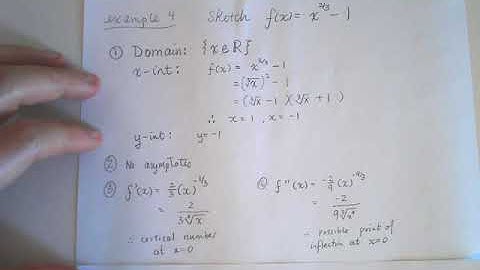 example 4 Sketch f(x) = x^(2/3) - 1
① Domain: {x∈R}
x-int: f(x) = x^(2/3) - 1
= (∛x)² - 1
= (∛x - 1)(∛x + 1)
∴ x = 1, x = -1
y-int: y = -1
② No asymptotes
③ f'(x) = 2/3 (x)^(-1/3)
= 2/(3∛x)
∴ critical number
at x=0
④ f''(x) = -2/9 (x)^(-4/3)
= -2/(9∛x⁴)
∴ possible point of
inflection at x=0